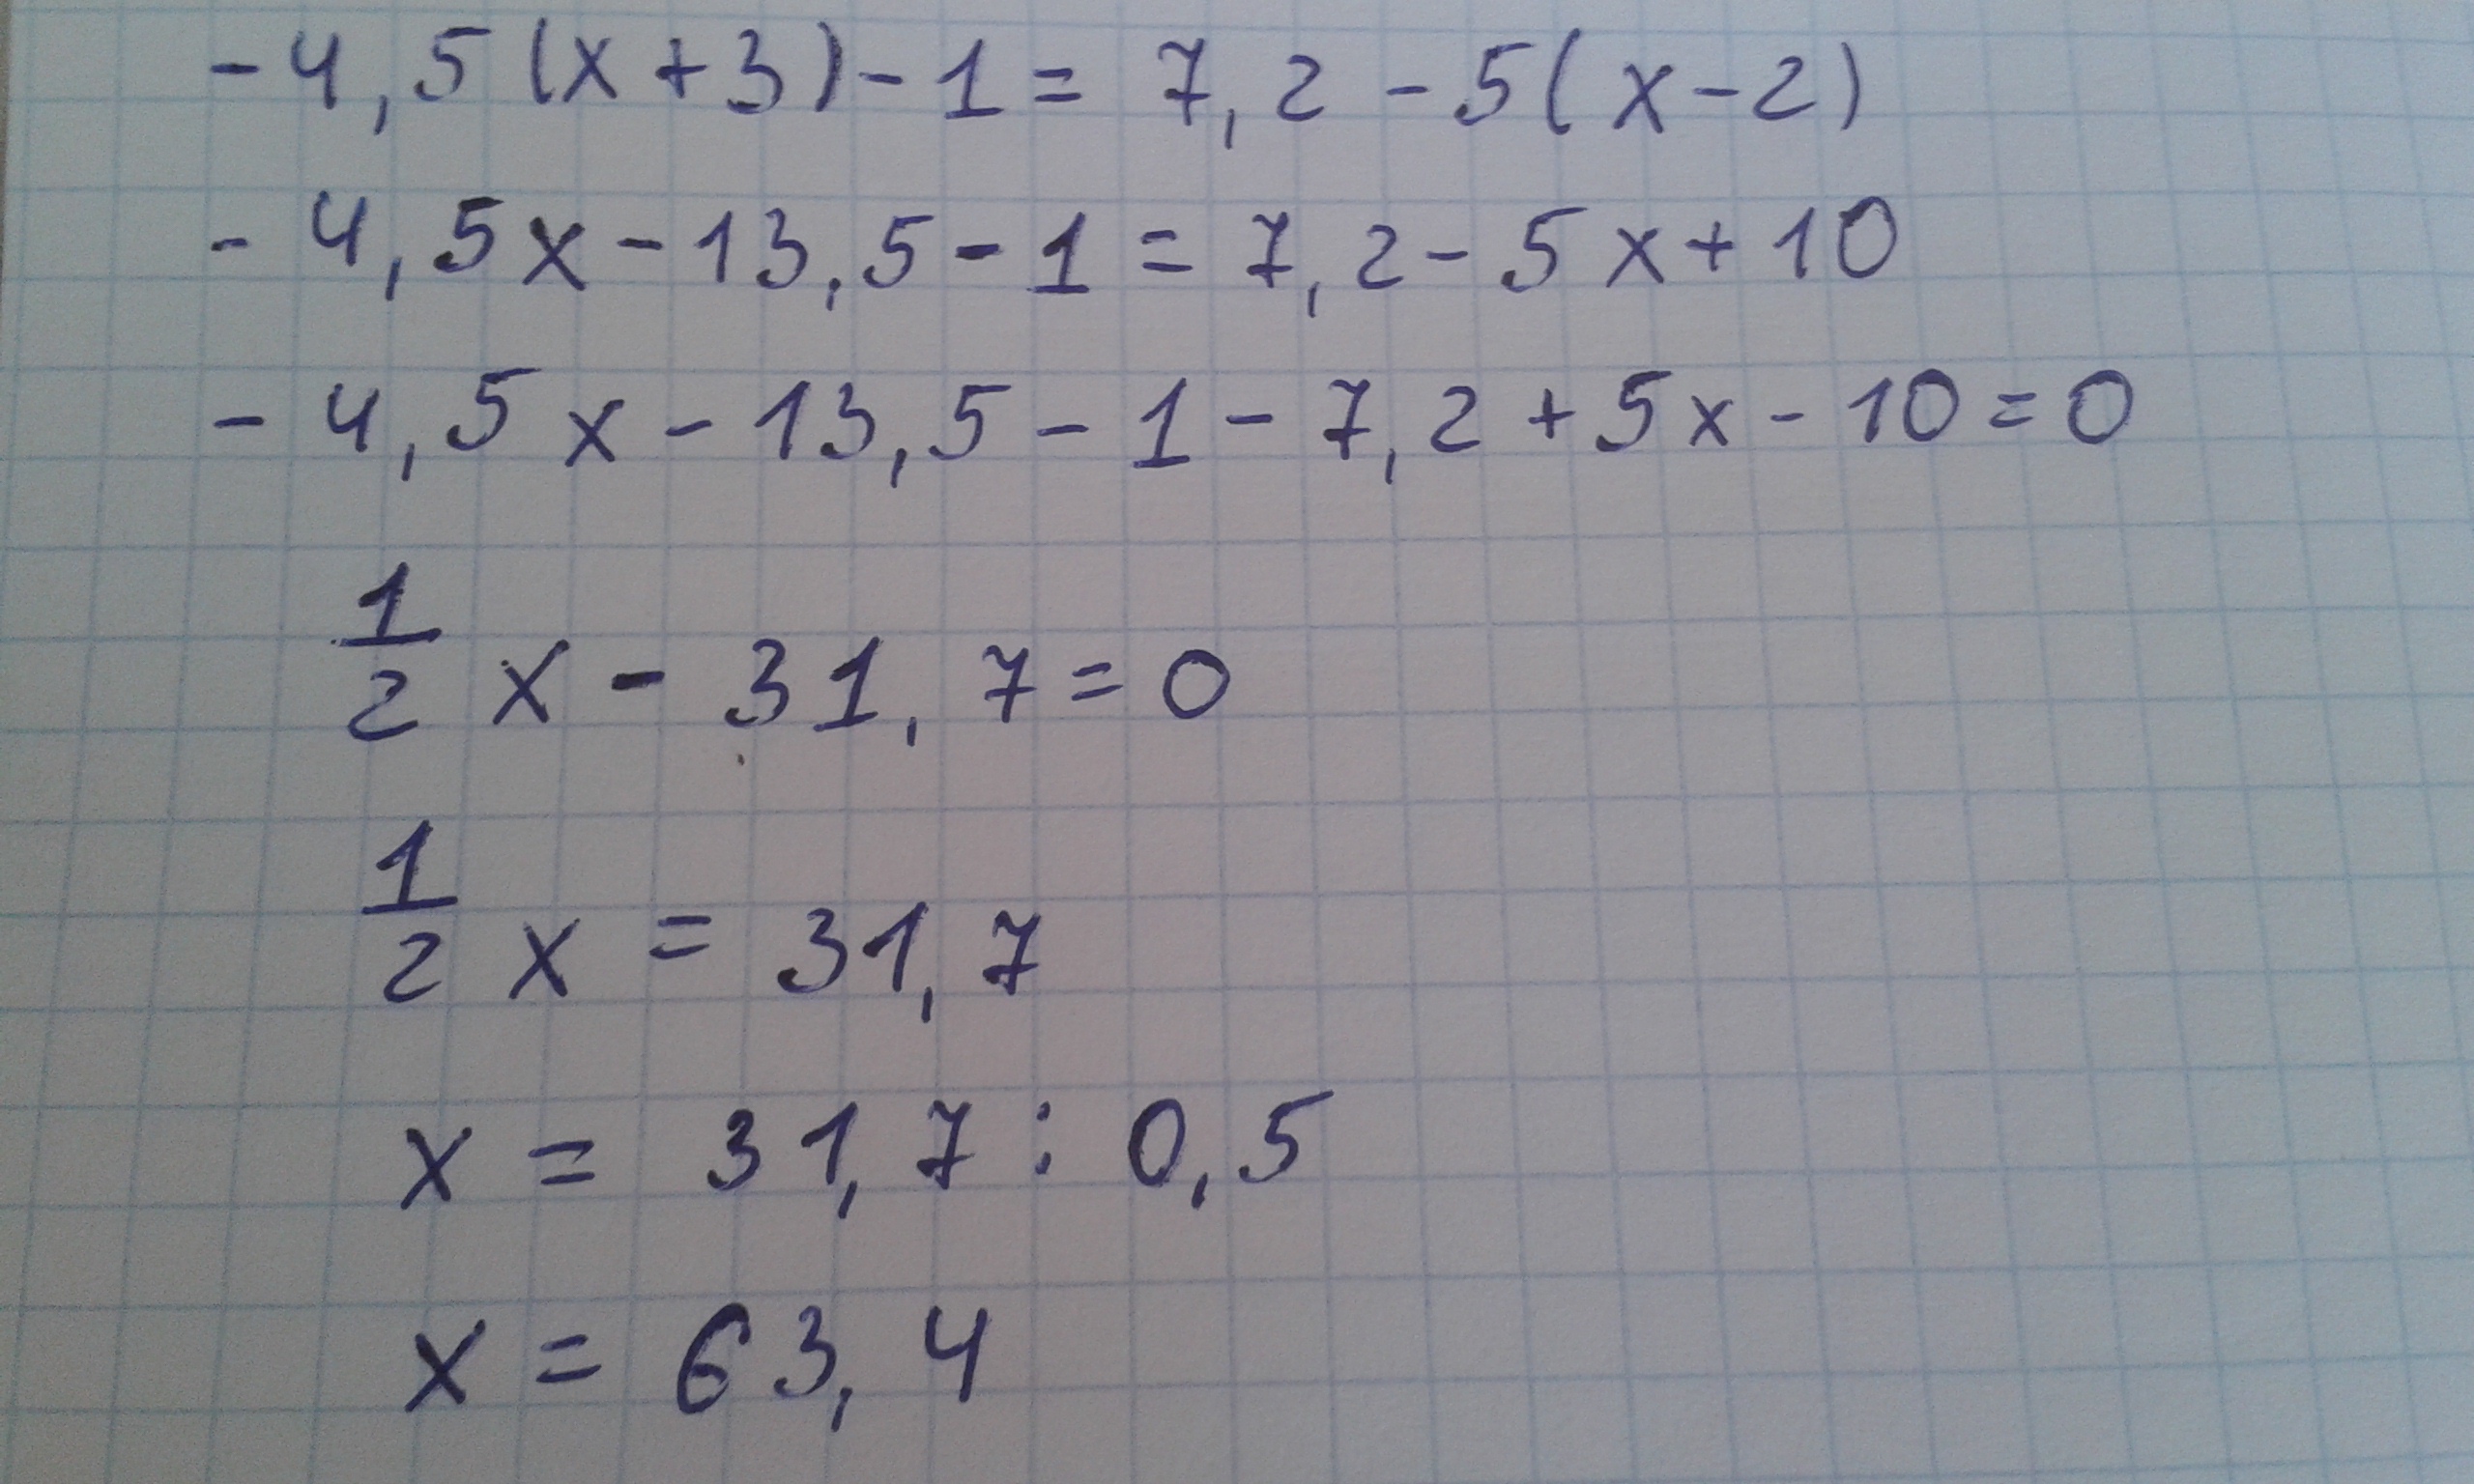 -4,5(x+3)-1=7,2-5(x-2)
-4,5x-13,5-1=7,2-5x+10
-4,5x-13,5-1-7,2+5x-10=0
1/2 x-31,7=0
1/2 x=31,7
x=31,7:0,5
x=63,4